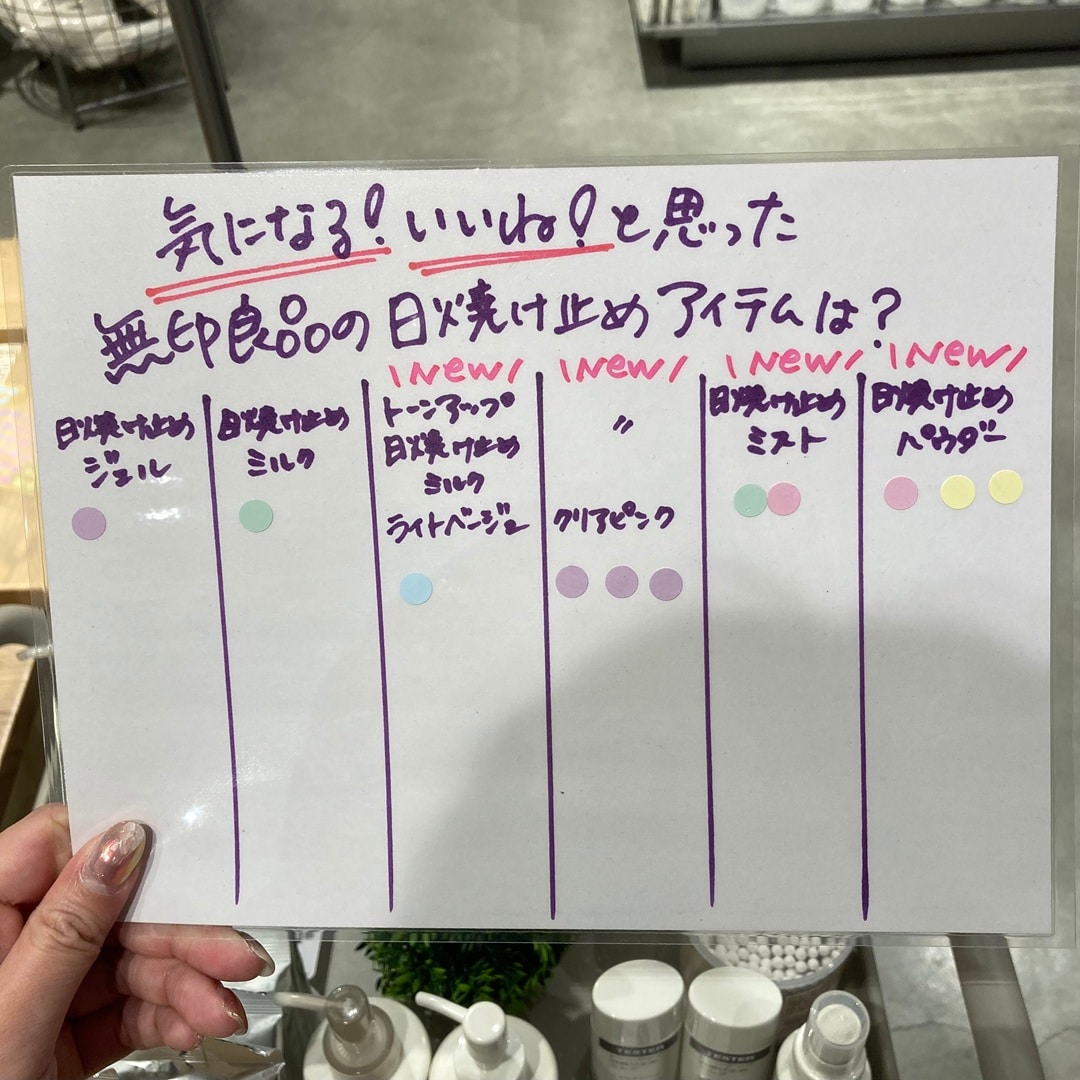 気になる！いいね！と思った
無印良品の日焼け止めアイテムは？
日焼け止め
ジェル
日焼け止め
ミルク
\New/
トーンアップ
日焼け止め
ミルク
ライトベージュ
\New/
〃
クリアピンク
\New/
日焼け止め
ミスト
\New/
日焼け止め
パウダー
TESTER
TESTER